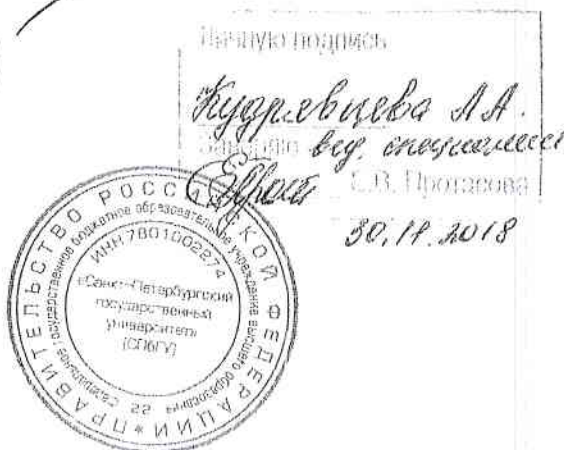 Личную подпись
Кудрявцева А.А.
Заверяю вед. специалист
Е.В. Протапова
30.11.2018
ПРАВИТЕЛЬСТВО РОССИЙСКОЙ ФЕДЕРАЦИИ *
Федеральное государственное бюджетное образовательное учреждение высшего образования 22
ИНН 7801002274
«Санкт-Петербургский
государственный
университет»
(СПбГУ)